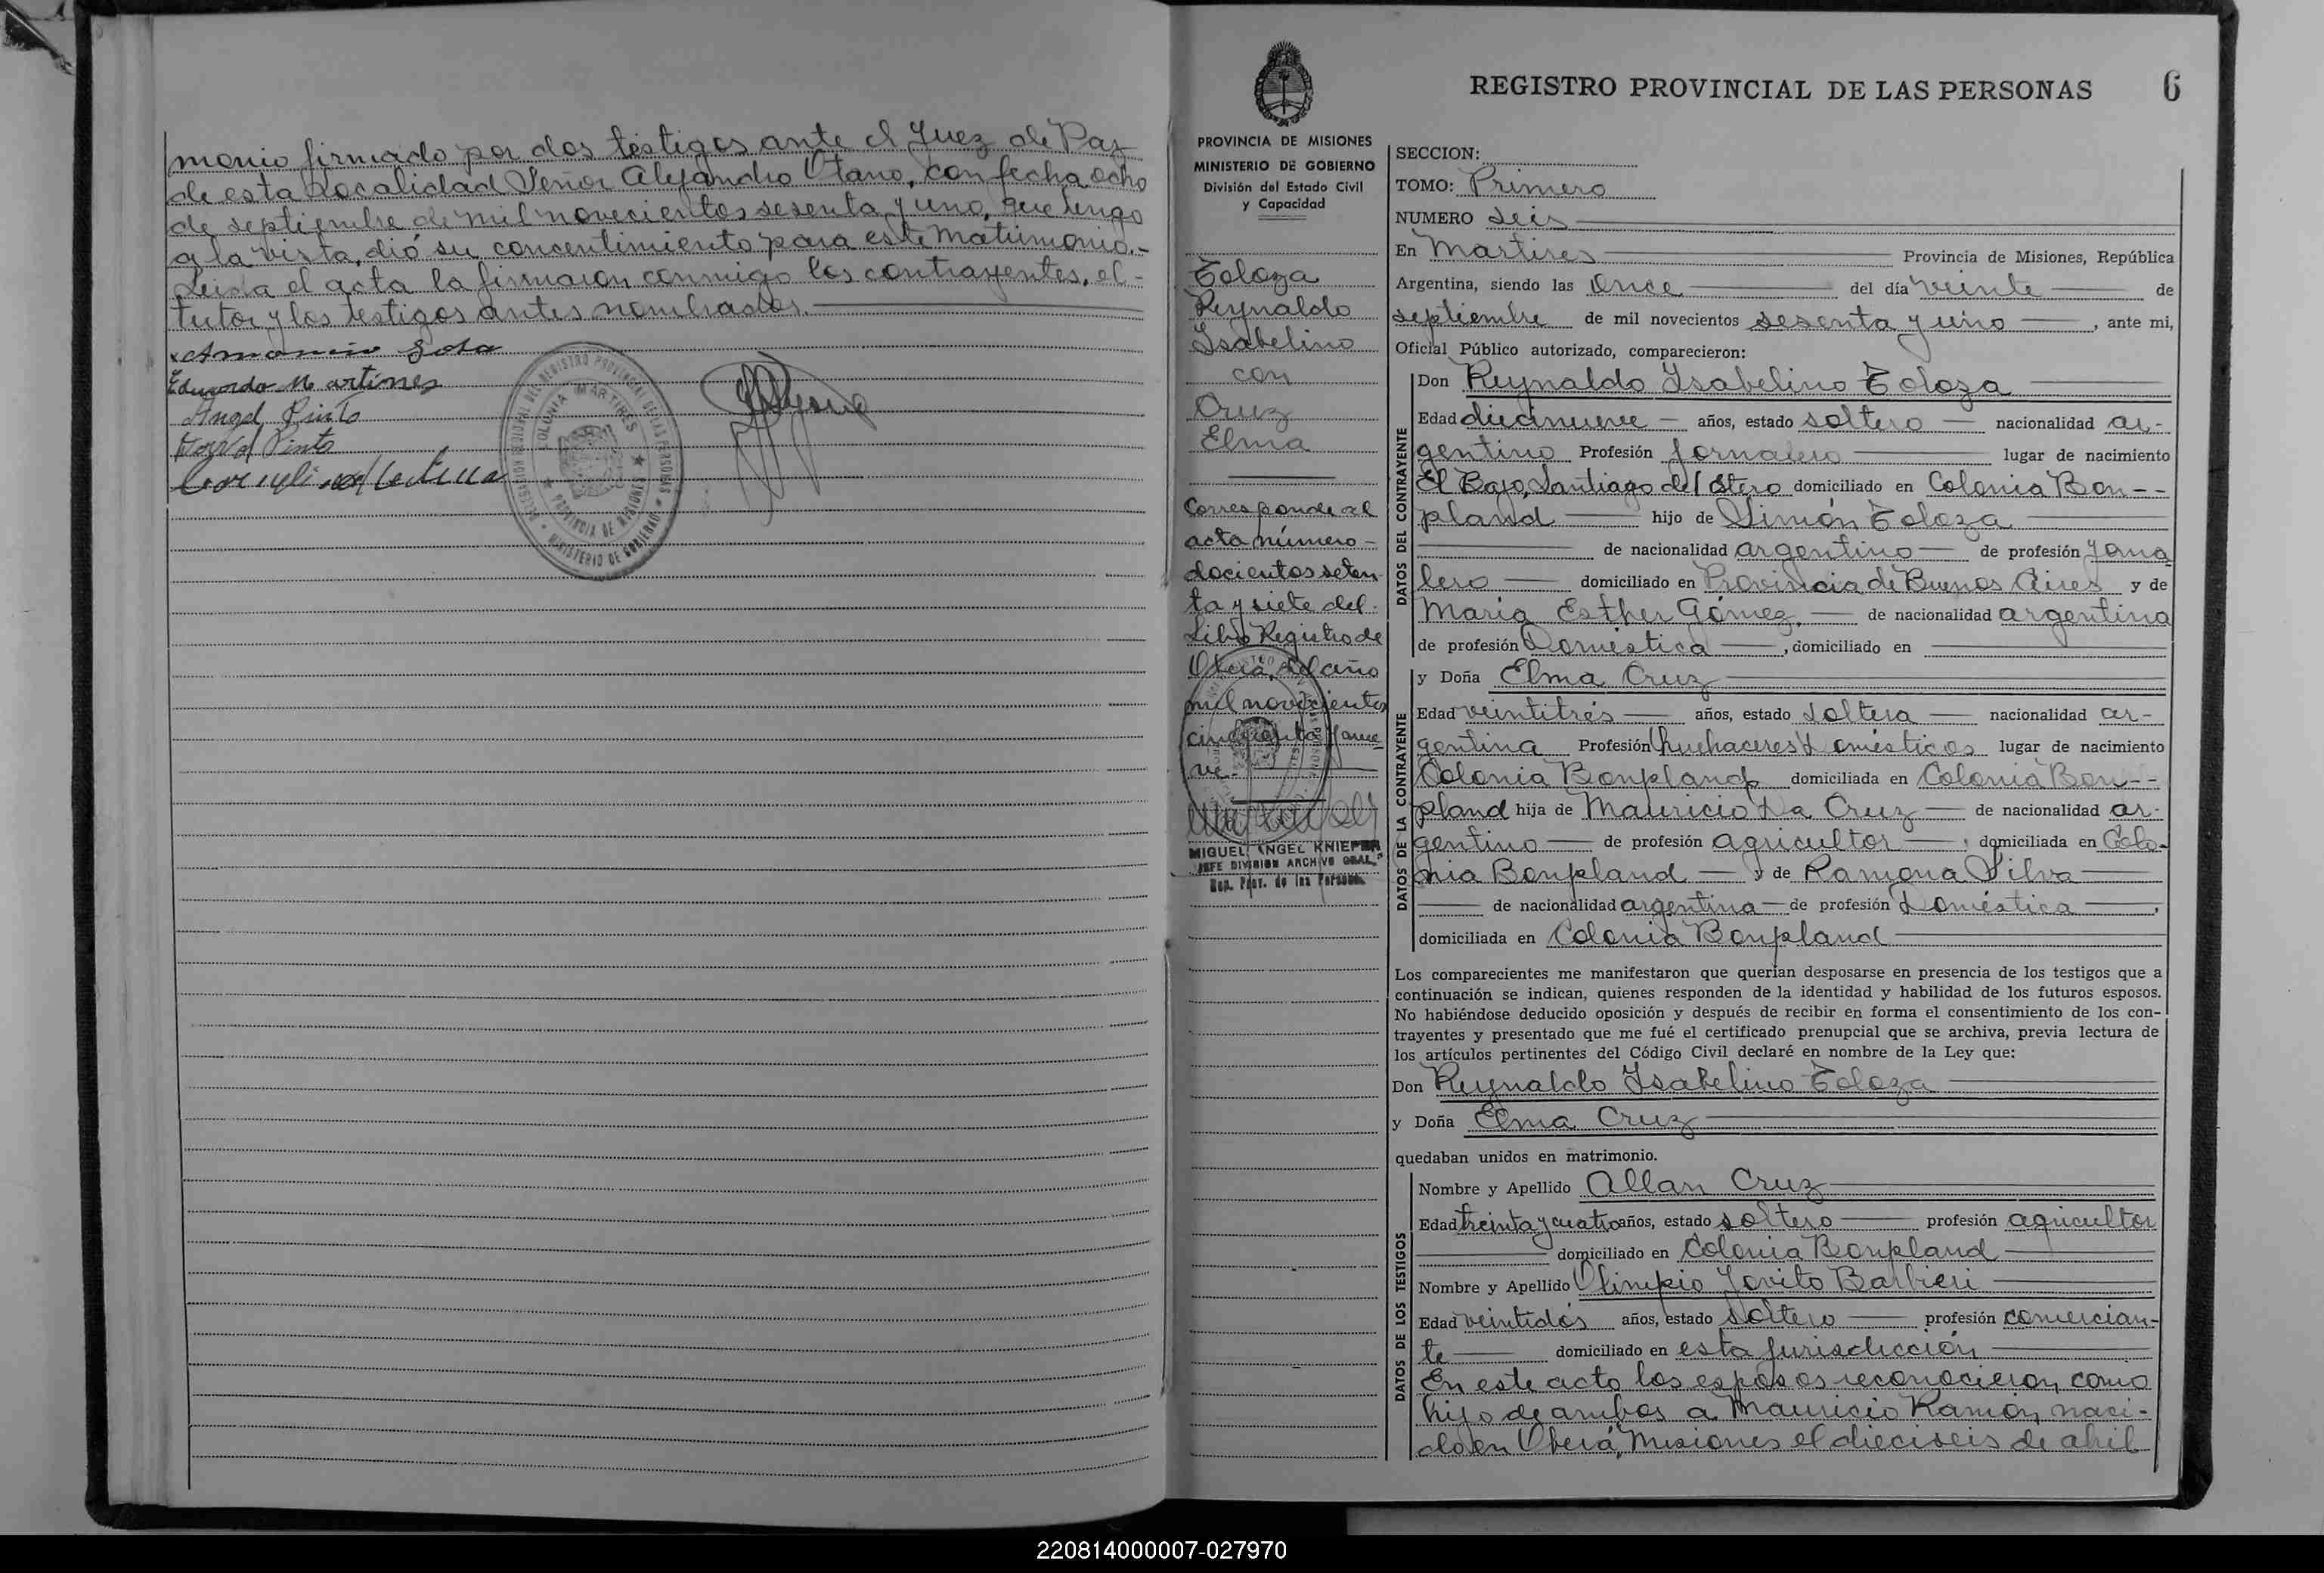 monio firmado por dos testigos ante el Juez de Paz
de esta Localidad Señor Alejandro Otano, con fecha ocho
de septiembre de mil novecientos sesenta y uno, que tengo
a la vista, dió su concentimiento para este matrimonio.-
Leida el acta la firmaron conmigo los contrayentes, el-
tutor y los testigos antes nombrados.
Eduardo Martines
Angel Pinto
Pinto
COLONIA MARTIRES
PROVINCIA DE MISIONES
MINISTERIO DE GOBIERNO
REGISTRO PROVINCIAL DE LAS PERSONAS 6
PROVINCIA DE MISIONES
MINISTERIO DE GOBIERNO
División del Estado Civil
y Capacidad
Toloza
Reynaldo
Isabelino
con
Cruz
Elma
Corresponde al
acta número-
docientos seten-
ta y siete del
Libro Registro de
Oberá, del año
mil novecientos
cincuenta y nue-
ve.
MIGUEL ANGEL KNIEPER
JEFE DIVISION ARCHIVO GRAL.
Reg. Prov. de las Personas
SECCION:
TOMO: Primero
NUMERO seis
En Martires Provincia de Misiones, República
Argentina, siendo las once del día veinte de
septiembre de mil novecientos sesenta y uno, ante mi,
Oficial Público autorizado, comparecieron:
DATOS DEL CONTRAYENTE
Don Reynaldo Isabelino Toloza
Edad diecinueve años, estado soltero nacionalidad ar-
gentino Profesión Jornalero lugar de nacimiento
El Bajo, Santiago del Estero domiciliado en Colonia Bon--
pland hijo de Simón Toloza
de nacionalidad argentino de profesión Jorna
lero domiciliado en Provincia de Buenos Aires y de
María Esther Gómez, de nacionalidad argentina
de profesión Doméstica, domiciliado en
DATOS DE LA CONTRAYENTE
y Doña Elma Cruz
Edad veintitrés años, estado soltera nacionalidad ar-
gentina Profesión Quehaceres Domésticos lugar de nacimiento
Colonia Bonpland domiciliada en Colonia Bon--
pland hija de Mauricio Da Cruz de nacionalidad ar-
gentino de profesión agricultor, domiciliada en Colo-
nia Bonpland y de Ramona Silva
de nacionalidad argentina de profesión Doméstica,
domiciliada en Colonia Bonpland
Los comparecientes me manifestaron que querían desposarse en presencia de los testigos que a
continuación se indican, quienes responden de la identidad y habilidad de los futuros esposos.
No habiéndose deducido oposición y después de recibir en forma el consentimiento de los con-
trayentes y presentado que me fué el certificado prenupcial que se archiva, previa lectura de
los artículos pertinentes del Código Civil declaré en nombre de la Ley que:
Don Reynaldo Isabelino Toloza
y Doña Elma Cruz
quedaban unidos en matrimonio.
DATOS DE LOS TESTIGOS
Nombre y Apellido Allan Cruz
Edad treinta y cuatro años, estado soltero profesión agricultor
domiciliado en Colonia Bonpland
Nombre y Apellido Olimpio Jovito Barbieri
Edad veintidós años, estado soltero profesión comercian-
te domiciliado en esta jurisdicción
En este acto los esposos reconocieron como
hijo de ambos a Mauricio Ramón, naci-
do en Oberá, Misiones el dieciseis de abril
220814000007-027970